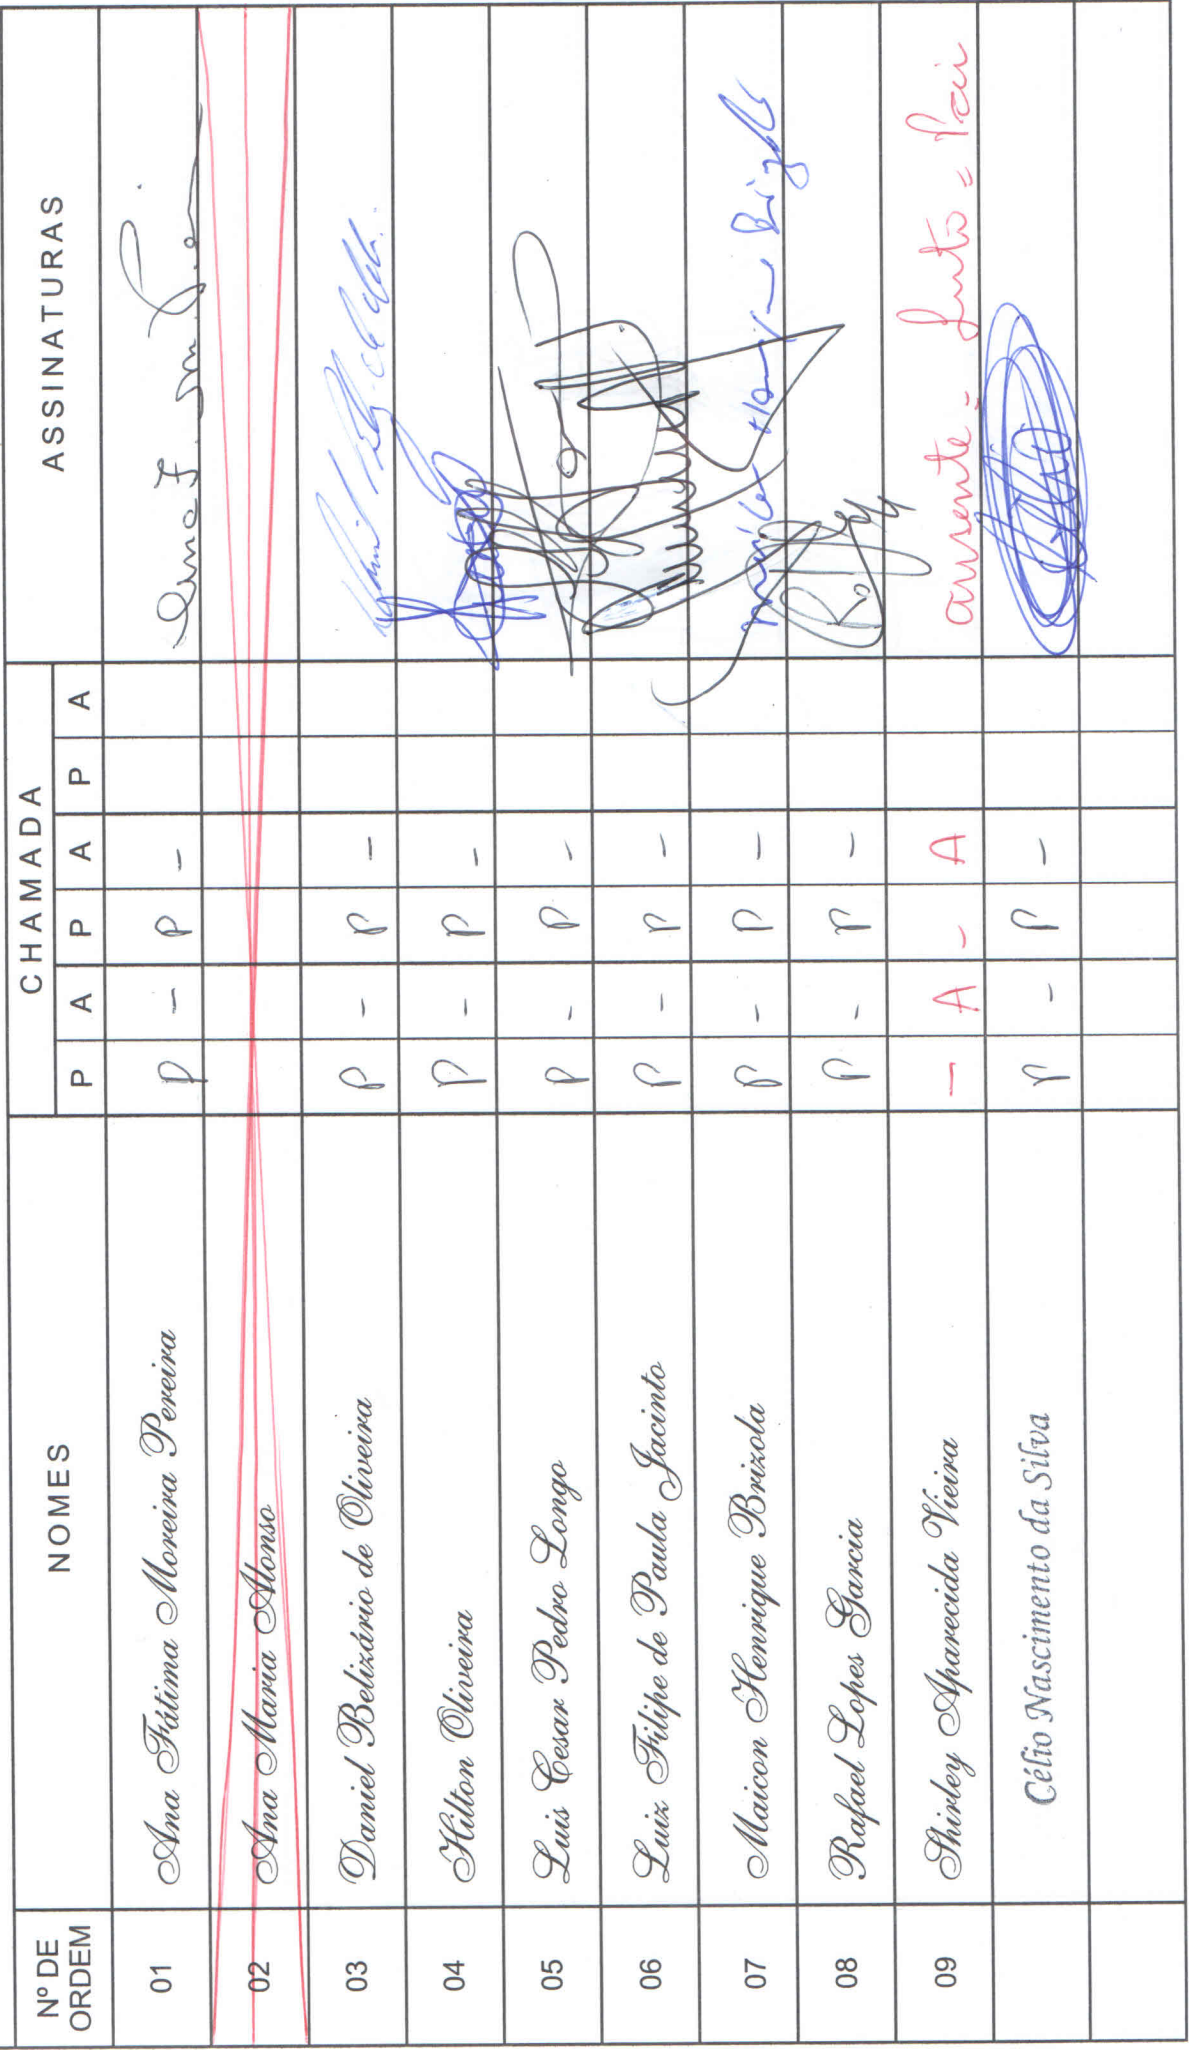 Nº DE ORDEM NOMES CHAMADA ASSINATURAS
P A P A P A
01 Ana Fátima Moreira Pereira P - P -
02 Ana Maria Alonso
03 Daniel Belizário de Oliveira P - P -
04 Hilton Oliveira P - P -
05 Luis Cesar Pedro Longo P - P -
06 Luiz Filipe de Paula Jacinto P - P -
07 Maicon Henrique Brizola P - P -
08 Rafael Lopes Garcia P - P -
09 Shirley Aparecida Vieira - A - A ausente -
Célio Nascimento da Silva P - P -